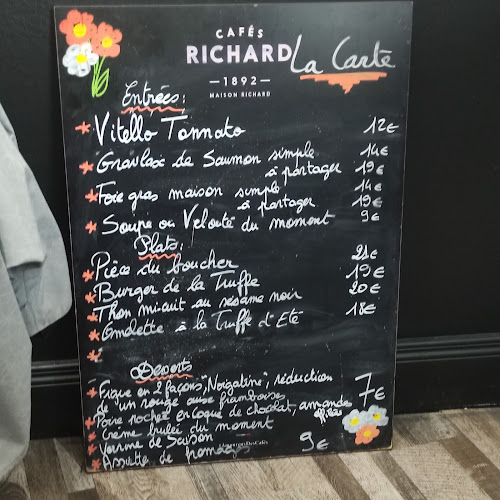 CAFÉS
RICHARD
— 1892 —
MAISON RICHARD
La Carte
Entrées:
Vitello Tonnato 12€
Gravlax de Saumon simple 14€
à partager 19€
Foie gras maison simple 14€
à partager 19€
Soupe ou Velouté du moment 9€
Plats:
Pièce du boucher 21€
Burger de la Truffe 19€
Thon mi-cuit au sésame noir 20€
Omelette à la Truffe d'Eté 18€
Desserts
Figue en 2 façons, "Nougatine", réduction
de "vin rouge aux framboises 7€
Poire pochée en coque de chocolat, amandes effilées
Crème brulée du moment
Verrine de Saison
Assiette de fromages 9€